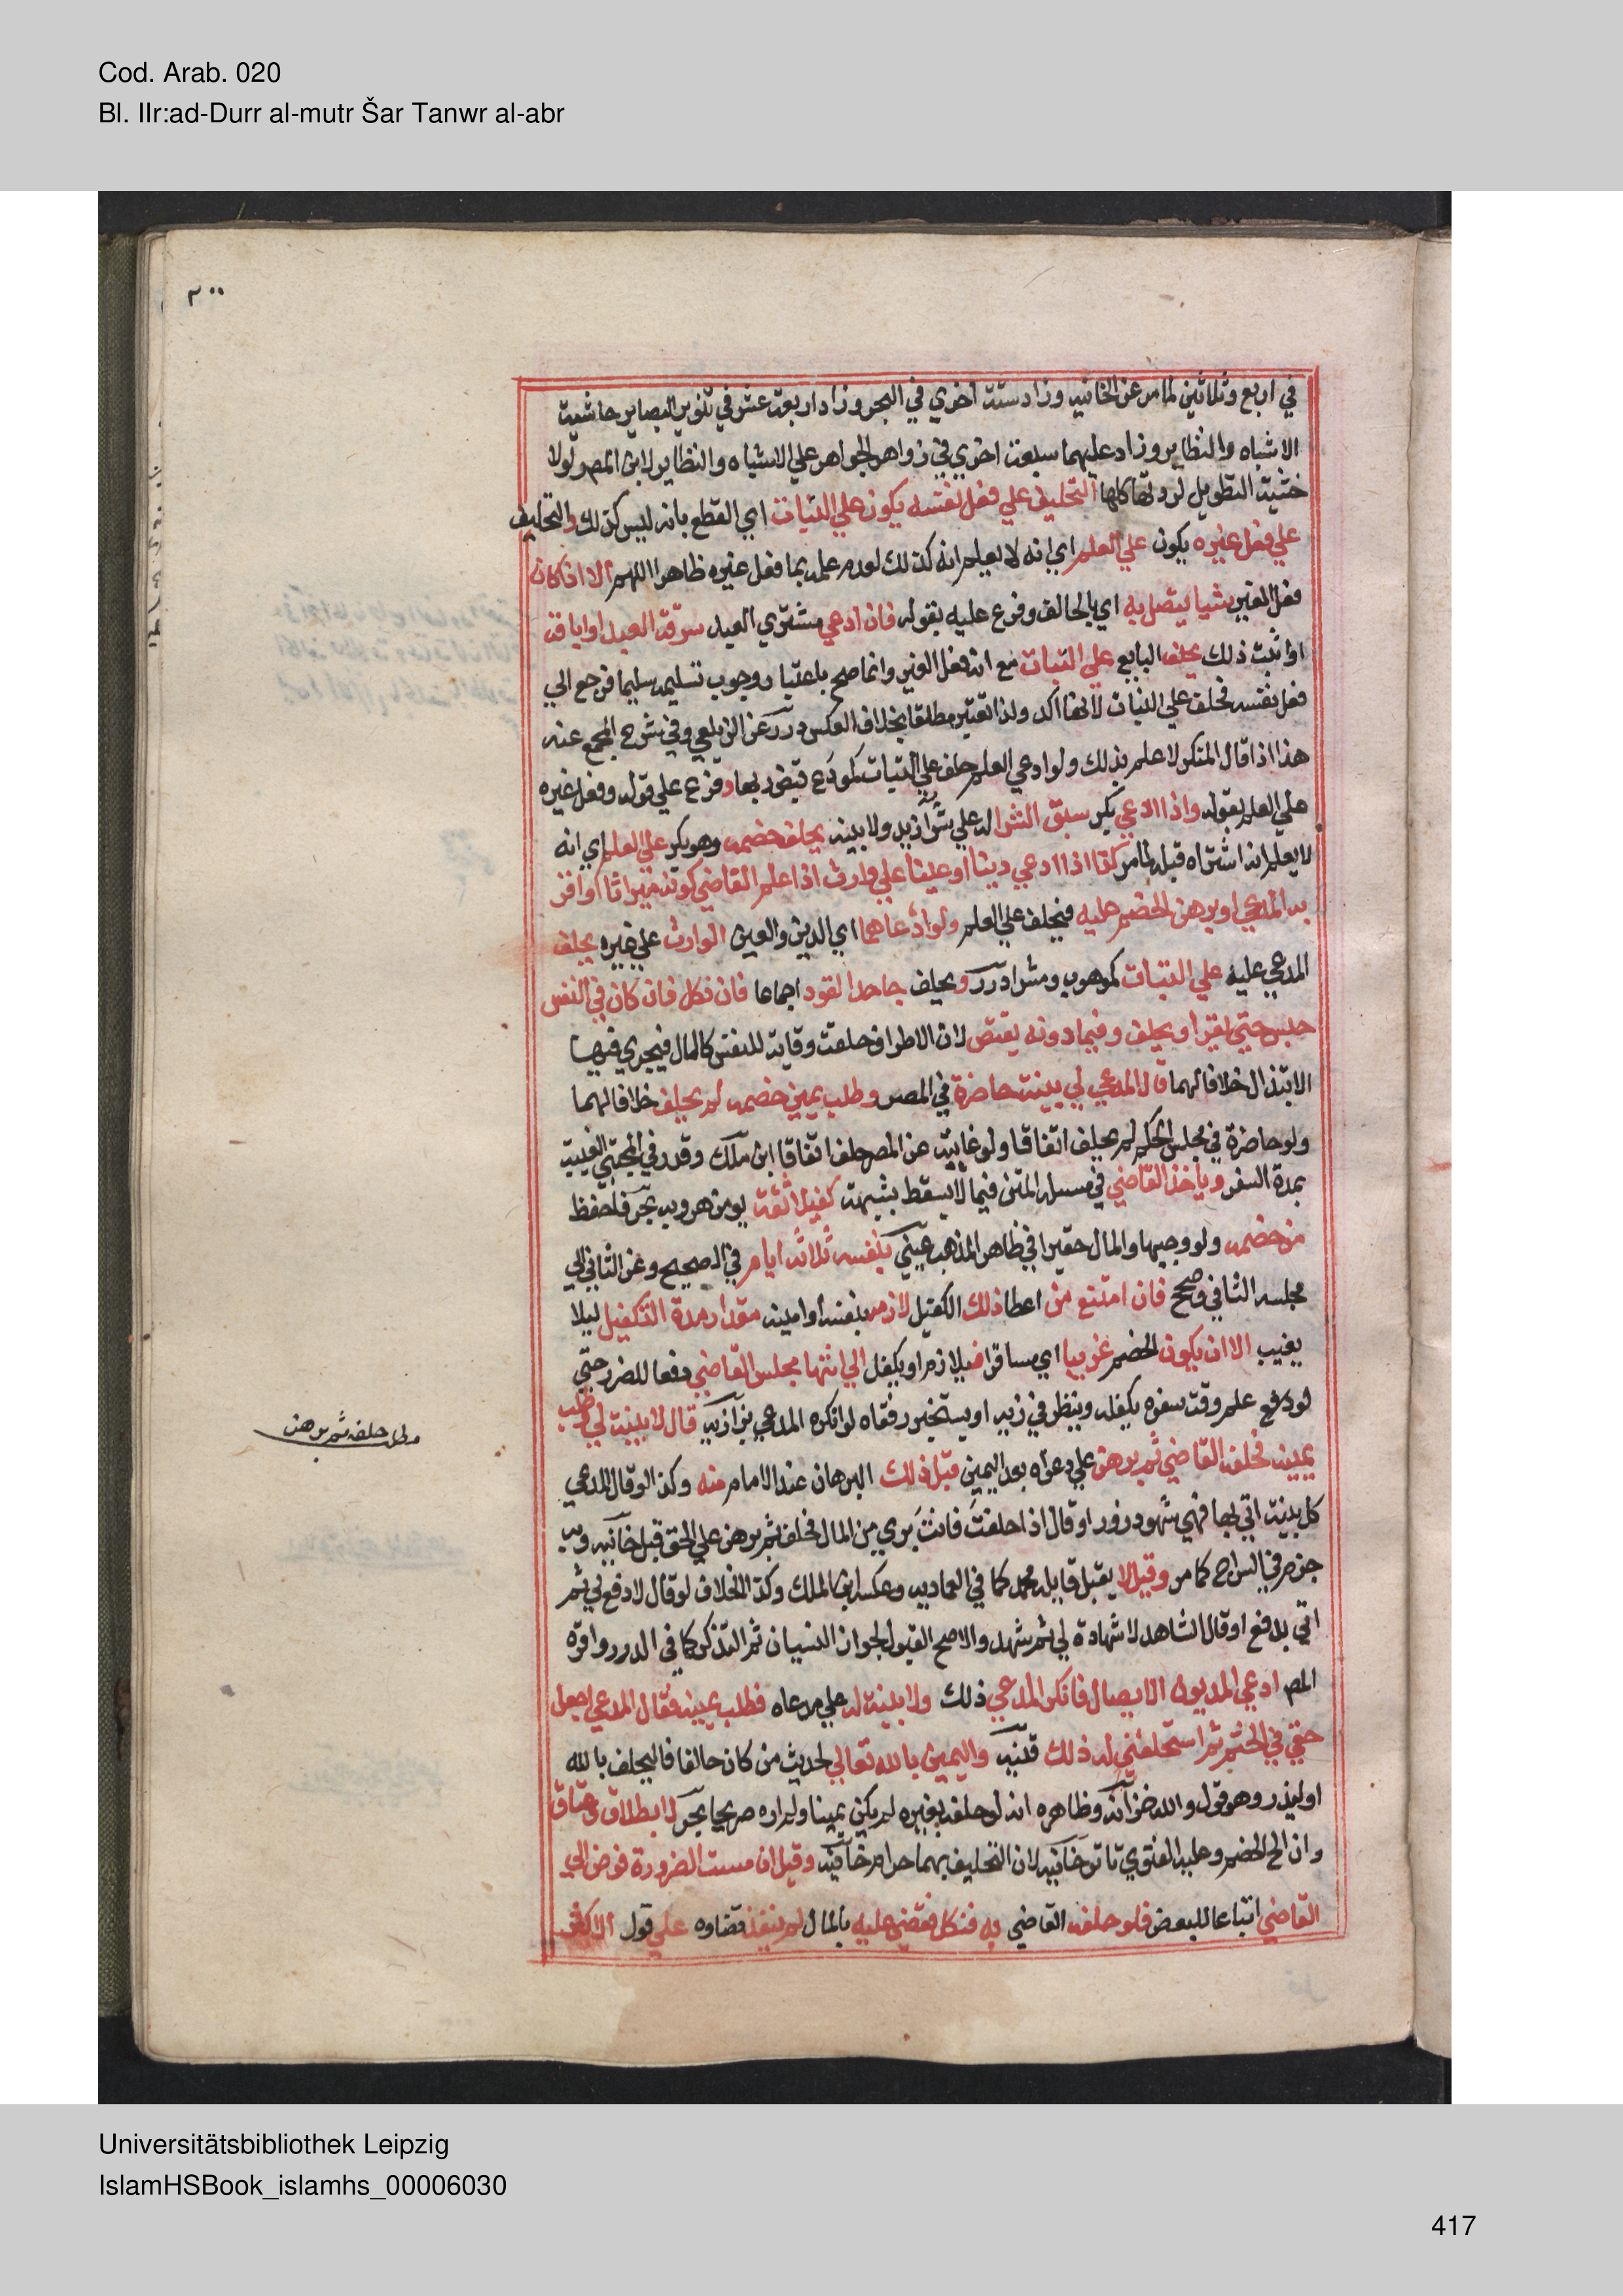 Cod. Arab. 020
Bl. IIr:ad-Durr al-mutr Šar Tanwr al-abr
٢٠٠
في اربع وثلاثين لما مر عن الخانيه وزاد ستة اخري في البحر وزاد اربعة عشر في تنوير البصاير حاشية
الاشباه والنظاير وزاد عليهما سبعة اخري في زواهر الجواهر علي الاشباه والنظاير لابن المصر ولولا
خشية التطويل لاوردتها كلها التحليف علي فعل نفسه يكون علي البتات اي القطع بانه ليس كذلك والتحليف
علي فعل غيره يكون علي العلم اي انه لا يعلم انه كذلك لعدم علمه بما فعل غيره ظاهرا اللهم الا اذا كان
فعل الغير شيا يتصل به اي بالحالف وفرع عليه بقوله فان ادعي مشتري العبد سرقة العبد او اباقه
او اثبت ذلك يحلف البايع علي البتات مع انه فعل الغير وانما صح باعتبار وجوب تسليمه سليما فرجع الي
فعل نفسه فحلف علي البتات لانها اكد ولذا تعتبر مطلقا بخلاف العكس درر عن الزيلعي وفي شرح المجمع عنه
هذا اذا قال المنكر لا علم بذلك ولو ادعي العلم حلف علي البتات كمودع قبض ربها وفرع علي قوله وفعل غيره
علي العلم بقوله واذا ادعي بكر سبق الشرا له علي شرا زيد ولا بينة يحلف خصمه وهو بكر علي العلم اي انه
لا يعلم انه اشتراه قبله لما مر كذا اذا ادعي دينا او عينا علي وارث اذا علم القاضي كونه ميراثا او اقر
به المدعي او برهن الخصم عليه فيحلف علي العلم ولو ادعاهما اي الدين والعين الوارث علي غيره يحلف
المدعي عليه علي البتات كموهوب ومشرا درر ويحلف جاحد القود اجماعا فان نكل فان كان في النفس
حبس حتي يقر او يحلف وفيما دونه يقتص لان الاطراف خلقت وقاية للنفس كالمال فيجري فيها
الابتذال خلافا لهما قال المدعي لي بينة حاضرة في المصر وطلب يمين خصمه لم يحلف خلافا لهما
ولو حاضرة في مجلس الحكم لم يحلف اتفاقا ولو غايبة عن المصر حلف اتفاقا ابن ملك وقدر في المجتبي الغيبة
بمدة السفر وياخذ القاضي في مسيلة المتن فيما لا يسقط بشبهة كفيلا ثقة يومن هروبه بحر فليحفظ
من خصمه ولو وجيها والمال حقيرا في ظاهر المذهب عيني بنفسه ثلاثة ايام في الصحيح وعن الثاني الي
مجلسه الثاني وصحح فان امتنع من اعطا ذلك الكفيل لازمه بنفسه او امينه مقدار مدة التكفيل ليلا
يغيب الا ان يكون الخصم غريبا اي مسافرا فيلازم او يكفل الي انتها مجلس القاضي دفعا للضرر حتي
لو علم وقت سفره يكفله وينظر في زيه او يستخبر رفقاه لو انكره المدعي بزازيه قال لا بينة لي وطلب
يمينه فحلفه القاضي ثم برهن علي دعواه بعد اليمين قبل ذلك البرهان عند الامام منه وكذا لو قال المدعي
كل بينة اتي بها فهي شهود زور او قال اذا حلفت فانت بري من المال فحلف ثم برهن علي الحق قبل خانيه وبه
جزم في السراج كما مر وقيل لا يقبل قايله محمد كما في العماديه وعكسه ابن الملك وكذا الخلاف لو قال لا دفع لي ثم
اتي بدفع او قال الشاهد لا شهادة لي ثم شهد والاصح القبول لجواز النسيان ثم التذكر كما في الدرر واقره
المصر ادعي المديون الايصال فانكر المدعي ذلك ولا بينة له علي مدعاه فطلب يمينه فقال المدعي اجعل
حقي في الختم ثم استحلفني له ذلك قنيه واليمين بالله تعالي لحديث من كان حالفا فاليحلف بالله
او ليذر وهو قول والله خزانه وظاهره انه لو حلفه بغيره لم يكن يمينا ولم اره صريحا بحر لا بطلاق وعتاق
وان الح الخصم وعليه الفتوي تاترخانيه لان التحليف بهما حرام خانيه وقيل ان مست الضرورة فوض الي
القاضي اتباعا للبعض فلو حلفه القاضي به فنكل فقضي عليه بالمال لم ينفذ قضاوه علي قول الاكثر
حلفه ثم برهن
Universitätsbibliothek Leipzig
IslamHSBook_islamhs_00006030
417